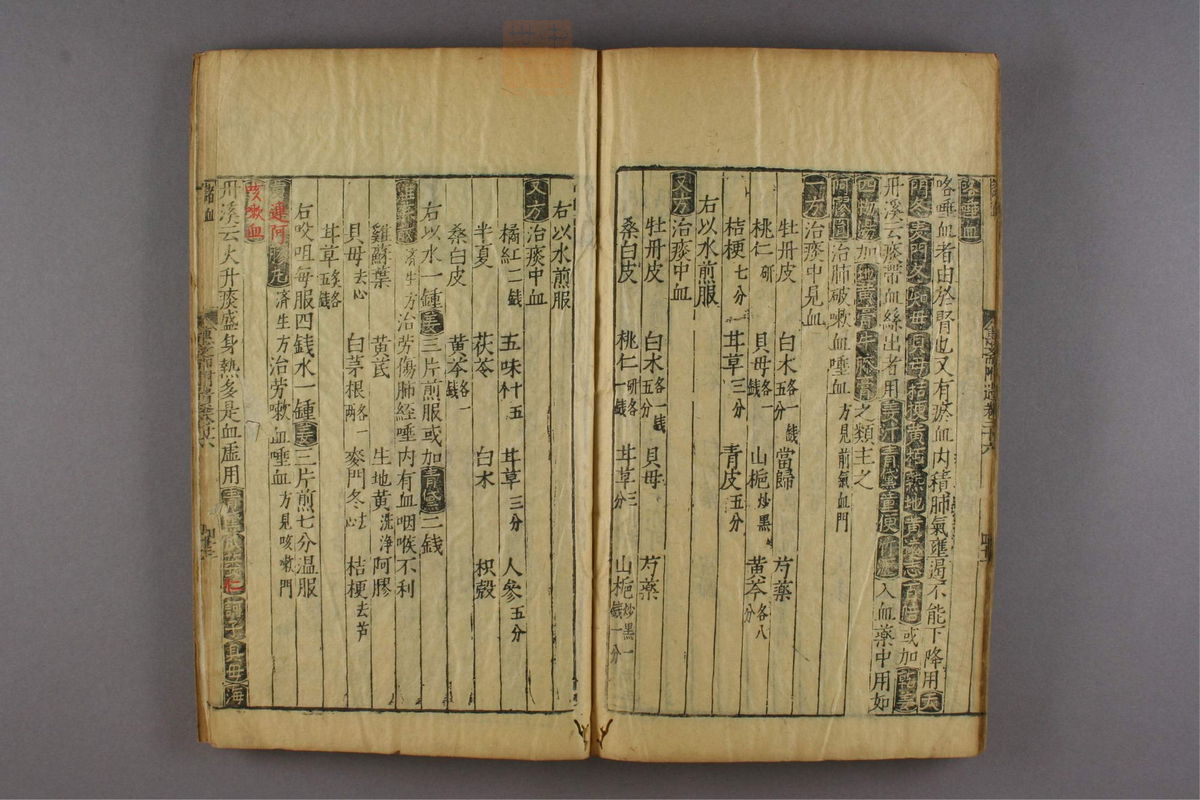 咯唾血
咯唾血者由於腎也又有瘀血內積肺氣壅遏不能下降用天
門冬麥門冬知母貝母桔梗黃柏熟地黃遠志或加
丹溪云痰帶血絲出者用姜汁青黛童便竹瀝入血藥中用如
四物湯加地黃膏牛膝膏之類主之
阿膠 治肺破嗽血唾血 方見前氣血門
一方 治痰中見血
牡丹皮 白朮各一錢 當歸 芍藥
桃仁研 貝母各一錢 山梔炒黑 黃芩各八分
桔梗七分 甘草三分 青皮五分
右以水煎服
又方 治痰中血
牡丹皮 白朮各一錢五分 貝母 芍藥
桑白皮 桃仁研各一錢 甘草三分 山梔炒黑一錢一分
右以水煎服
又方 治痰中血
橘紅二錢 五味十五 甘草三分 人參五分
半夏 茯苓 白朮 枳殼
桑白皮 黃芩各一錢
右以水一鍾姜三片煎服或加青黛二錢
雞蘇散 濟生方治勞傷肺經唾內有血咽喉不利
雞蘇葉 黃芪 生地黃洗淨 阿膠
貝母去心 白茅根各一兩 麥門冬去心 桔梗去芦
甘草炙各五錢
右㕮咀每服四錢水一鍾姜三片煎七分溫服
黃連阿膠丸 濟生方治勞嗽血唾血 方見咳嗽門
咳嗽血
丹溪云火升痰盛身熱多是血虛用青黛瓜蔞仁訶子貝母海